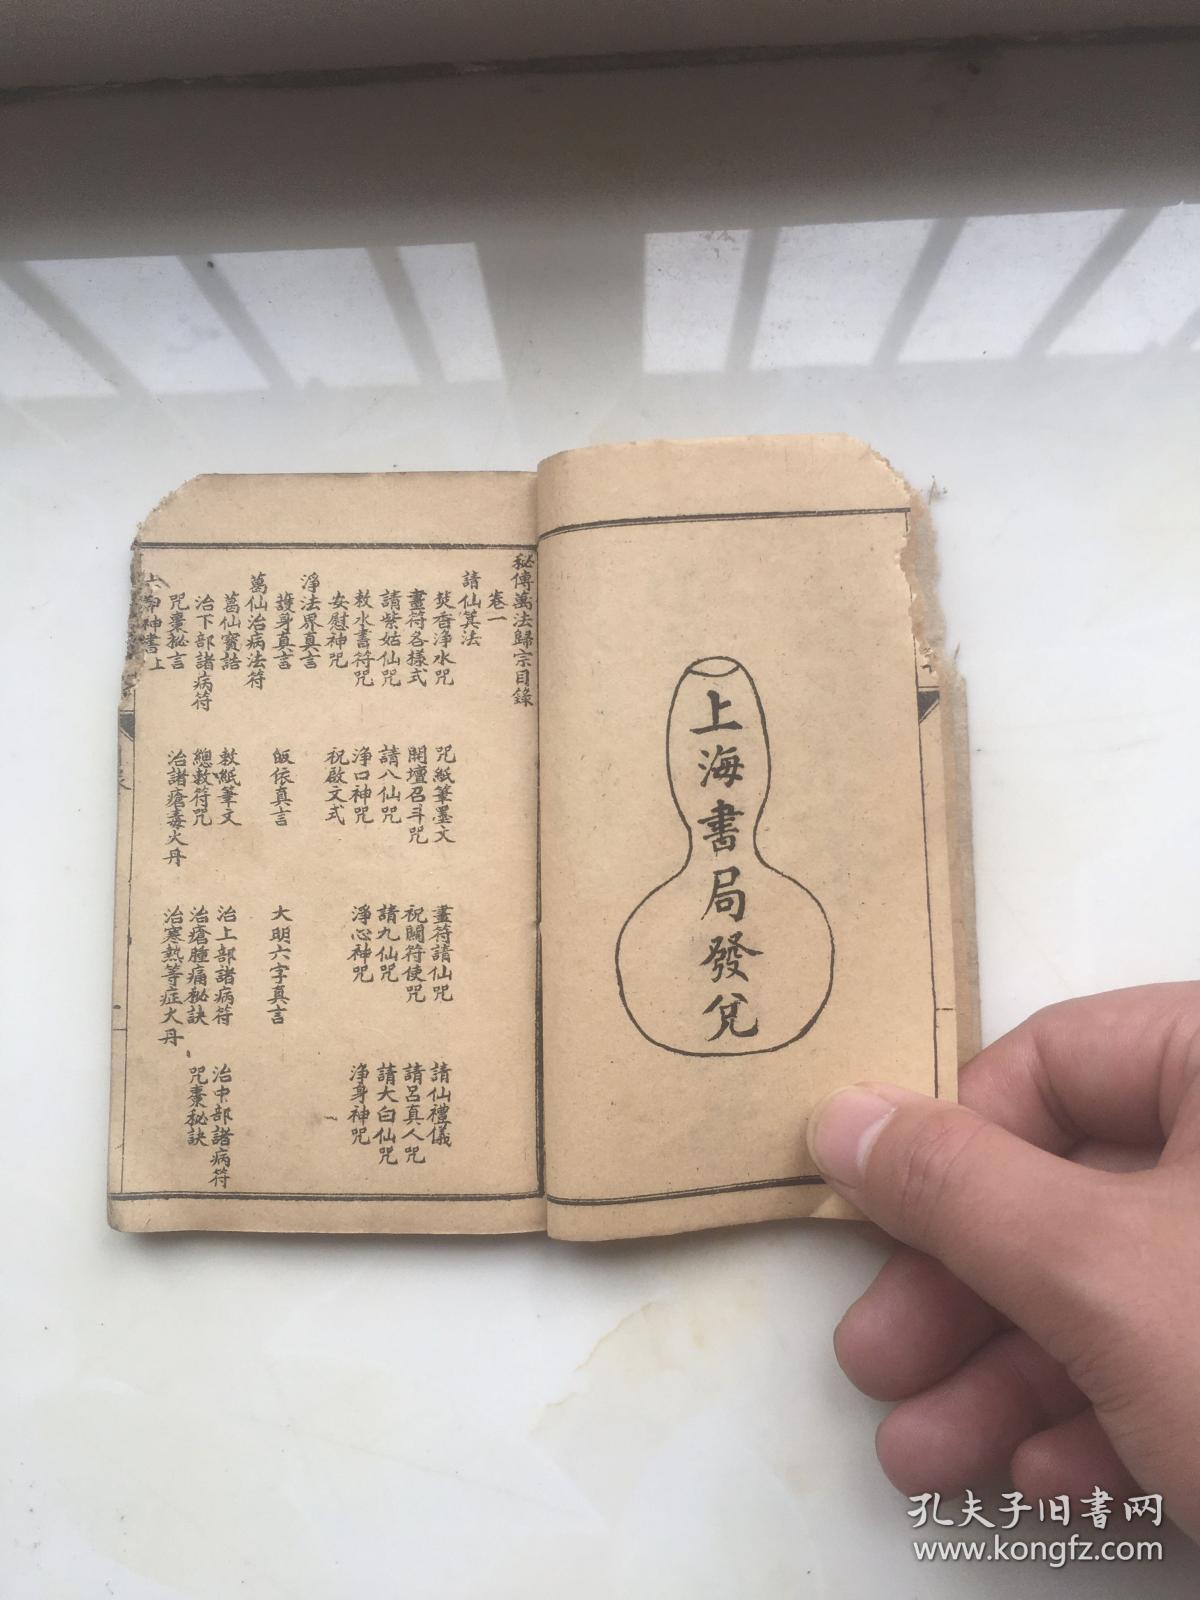 上海書局發兌
秘傳萬法歸宗目錄
卷一
請仙箕法
焚香淨水咒 咒紙筆墨文 畫符請仙咒 請仙禮儀
畫符各樣式 開壇召斗咒 祝關符使咒 請呂真人咒
請紫姑仙咒 請八仙咒 請九仙咒 請大白仙咒
敕水書符咒 淨口神咒 淨心神咒 淨身神咒
安慰神咒 祝啟文式
淨法界真言
護身真言 皈依真言 大明六字真言
葛仙治病法符
葛仙寶誥 敕紙筆文 治上部諸病符 治中部諸病符
治下部諸病符 總敕符咒 治瘡腫痛秘訣 咒棗秘訣
咒棗秘言 治諸瘡毒火丹 治寒熱等症火丹
六甲神書上
孔夫子旧书网
www.kongfz.com